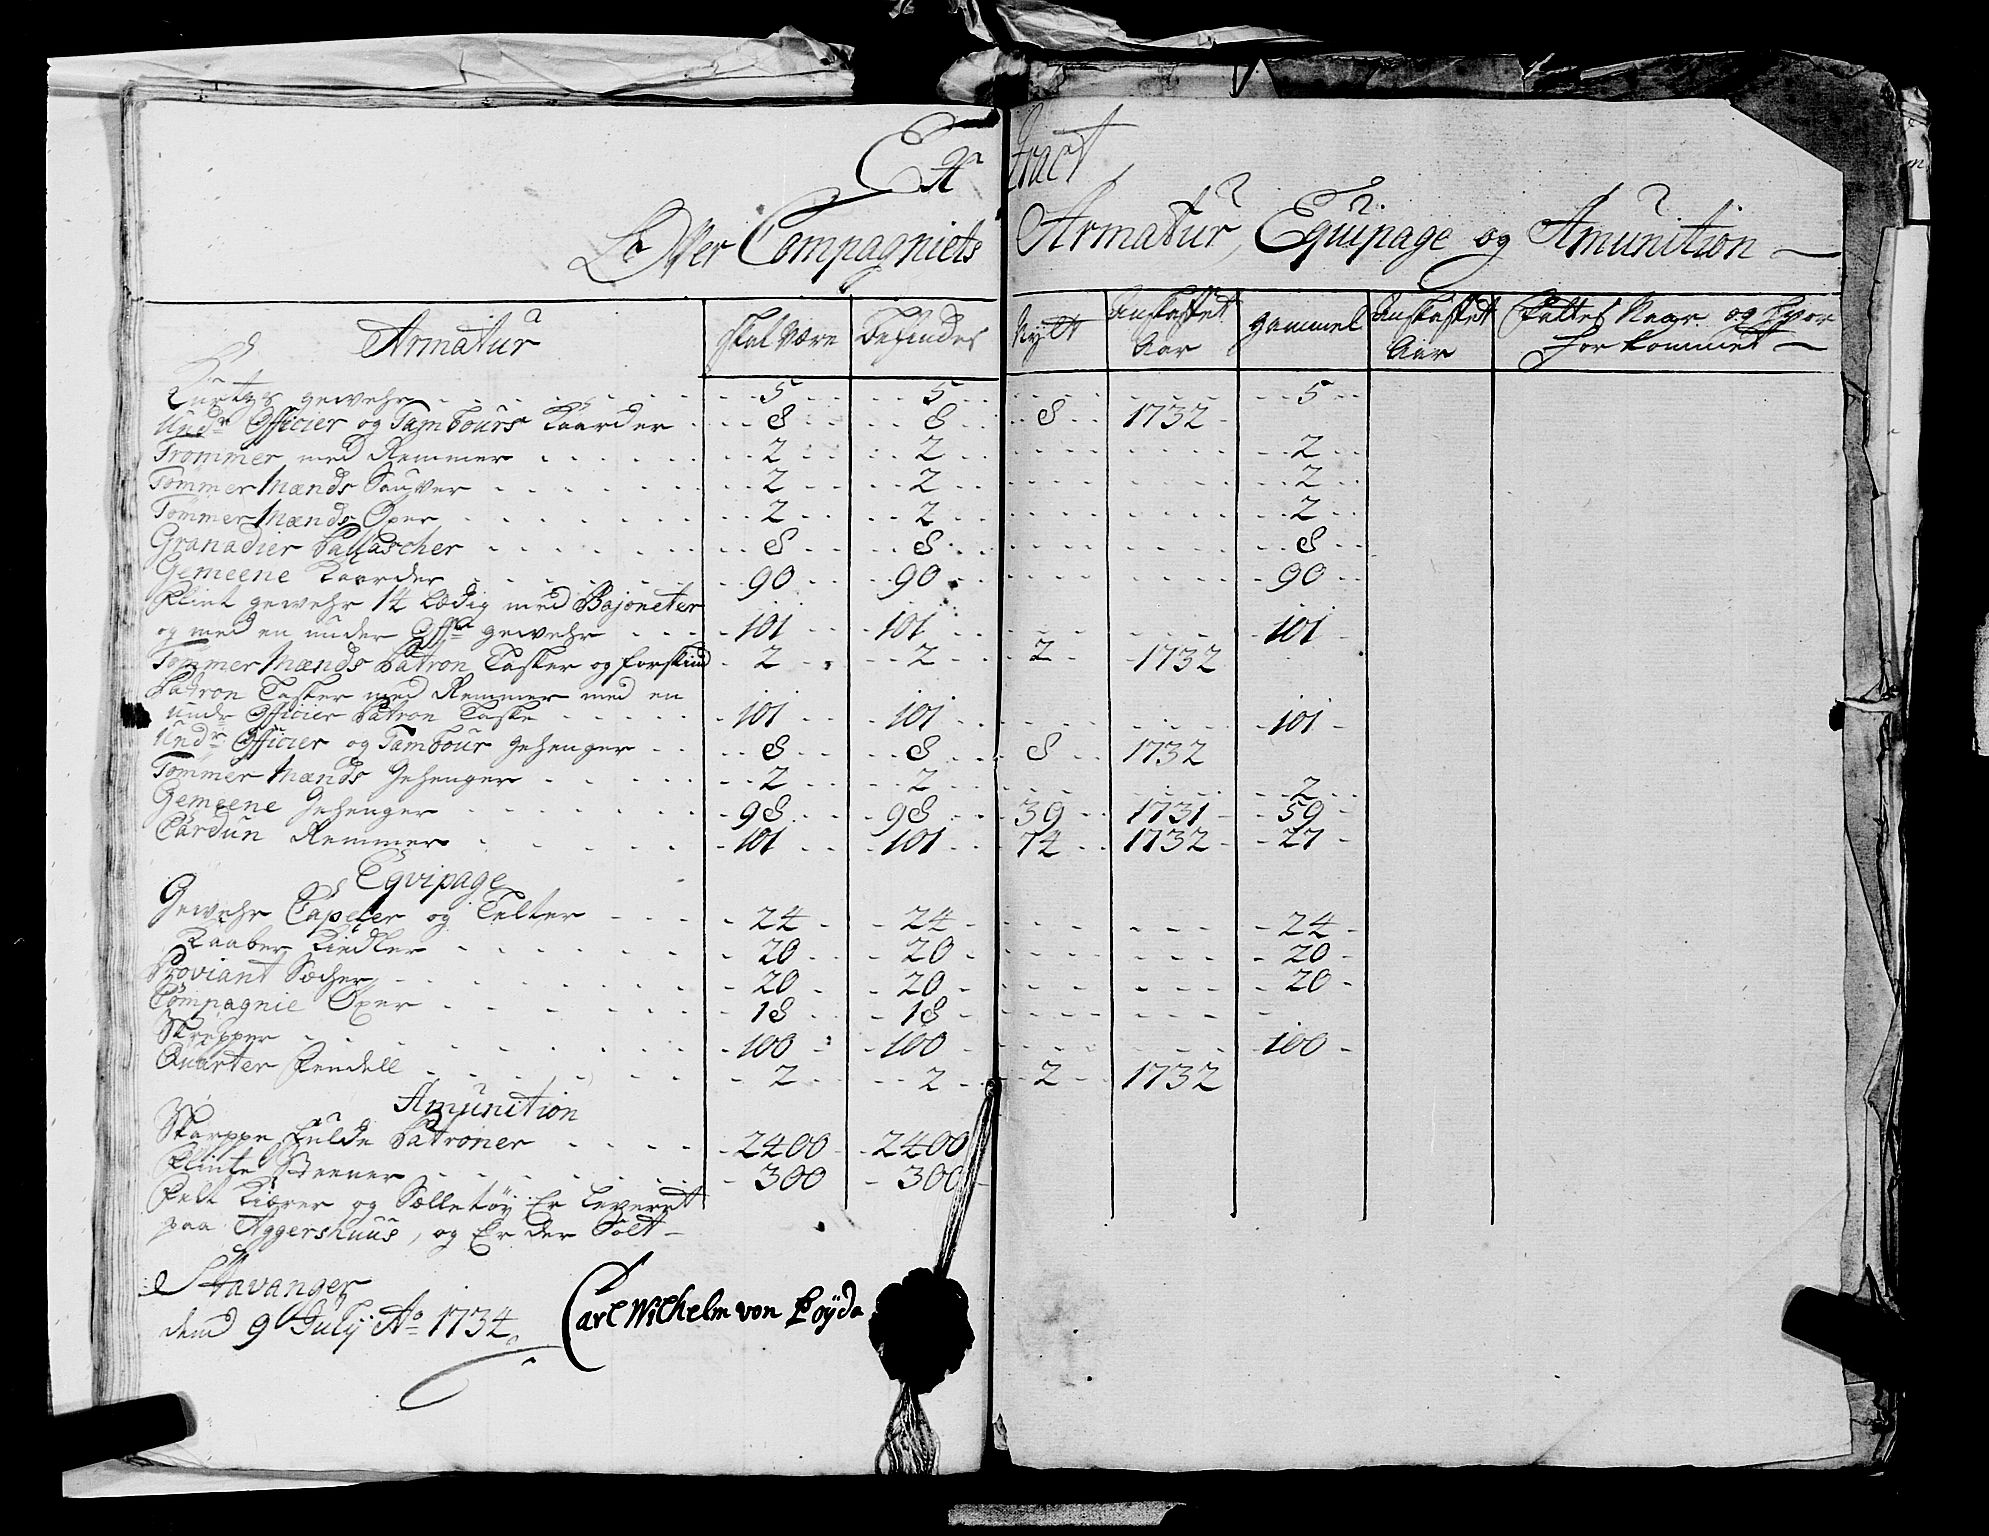 Extract
Over Compagniets Armatur, Equipage og Amunition
Armatur | skal være | befindes | Nÿtt | anskaffet Aar | gammel | anskaffet Aar | Feiles Naar og hvor for kommet
Kurtz gewehr | 5 | 5 | | | 5
Undr Officier og Tambours Kaarder | 8 | 8 | 8 | 1732
Trommer med Remmer | 2 | 2 | | | 2
Tømmer Mænds Sauver | 2 | 2 | | | 2
Tømmer Mænds Øxer | 2 | 2 | | | 2
Granadier Pallascher | 8 | 8 | | | 8
Gemeene Kaarder | 90 | 90 | | | 90
Flint gewehr 14 Lødig med Bajoneter
og med en under Offr gewehr | 101 | 101 | | | 101
Tømmer Mænds Patron Tasker og forskind | 2 | 2 | 2 | 1732
Patron Tasker med Remmer med en
Undr Officier Patron Taske | 101 | 101 | | | 101
Undr Officier og Tambour gehenger | 8 | 8 | 8 | 1732
Tømmer Mænds Gehenger | 2 | 2 | | | 2
Gemeene Gehenger | 98 | 98 | 39 | 1731 | 59
Cardun Remmer | 101 | 101 | 74 | 1732 | 27
Eqvipage
Gewehr Capeter og Telter | 24 | 24 | | | 24
Kaaber Kiedler | 20 | 20 | | | 20
Proviant Sæcher | 20 | 20 | | | 20
Compagnie Øxer | 18 | 18
Skrepper | 100 | 100 | | | 100
Quarter Pendell | 2 | 2 | 2 | 1732
Amunition
Skarppe fulde Patroner | 2400 | 2400
Flinte Steener | 300 | 300
Felt Kiærer og Sælletøÿ Er leveret
paa Aggershuus, og Er der Solt
Stavanger
dend 9 Julÿ Ao 1734
Carl Wilhelm von Póÿda